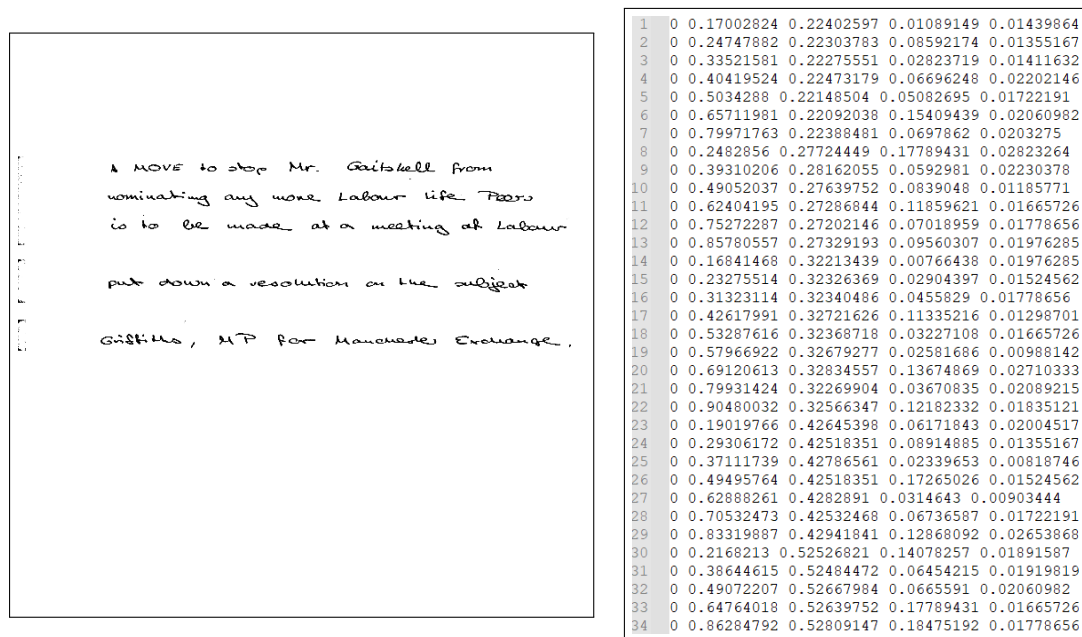 A MOVE to stop Mr. Gaitskell from
nominating any more Labour Life Peers
is to be made at a meeting of Labour
put down a resolution on the subject
Griffiths, MP for Manchester Exchange.
1 0 0.17002824 0.22402597 0.01089149 0.01439864
2 0 0.24747882 0.22303783 0.08592174 0.01355167
3 0 0.33521581 0.22275551 0.02823719 0.01411632
4 0 0.40419524 0.22473179 0.06696248 0.02202146
5 0 0.5034288 0.22148504 0.05082695 0.01722191
6 0 0.65711981 0.22092038 0.15409439 0.02060982
7 0 0.79971763 0.22388481 0.0697862 0.0203275
8 0 0.2482856 0.27724449 0.17789431 0.02823264
9 0 0.39310206 0.28162055 0.0592981 0.02230378
10 0 0.49052037 0.27639752 0.0839048 0.01185771
11 0 0.62404195 0.27286844 0.11859621 0.01665726
12 0 0.75272287 0.27202146 0.07018959 0.01778656
13 0 0.85780557 0.27329193 0.09560307 0.01976285
14 0 0.16841468 0.32213439 0.00766438 0.01976285
15 0 0.23275514 0.32326369 0.02904397 0.01524562
16 0 0.31323114 0.32340486 0.0455829 0.01778656
17 0 0.42617991 0.32721626 0.11335216 0.01298701
18 0 0.53287616 0.32368718 0.03227108 0.01665726
19 0 0.57966922 0.32679277 0.02581686 0.00988142
20 0 0.69120613 0.32834557 0.13674869 0.02710333
21 0 0.79931424 0.32269904 0.03670835 0.02089215
22 0 0.90480032 0.32566347 0.12182332 0.01835121
23 0 0.19019766 0.42645398 0.06171843 0.02004517
24 0 0.29306172 0.42518351 0.08914885 0.01355167
25 0 0.37111739 0.42786561 0.02339653 0.00818746
26 0 0.49495764 0.42518351 0.17265026 0.01524562
27 0 0.62888261 0.4282891 0.0314643 0.00903444
28 0 0.70532473 0.42532468 0.06736587 0.01722191
29 0 0.83319887 0.42941841 0.12868092 0.02653868
30 0 0.2168213 0.52526821 0.14078257 0.01891587
31 0 0.38644615 0.52484472 0.06454215 0.01919819
32 0 0.49072207 0.52667984 0.0665591 0.02060982
33 0 0.64764018 0.52639752 0.17789431 0.01665726
34 0 0.86284792 0.52809147 0.18475192 0.01778656